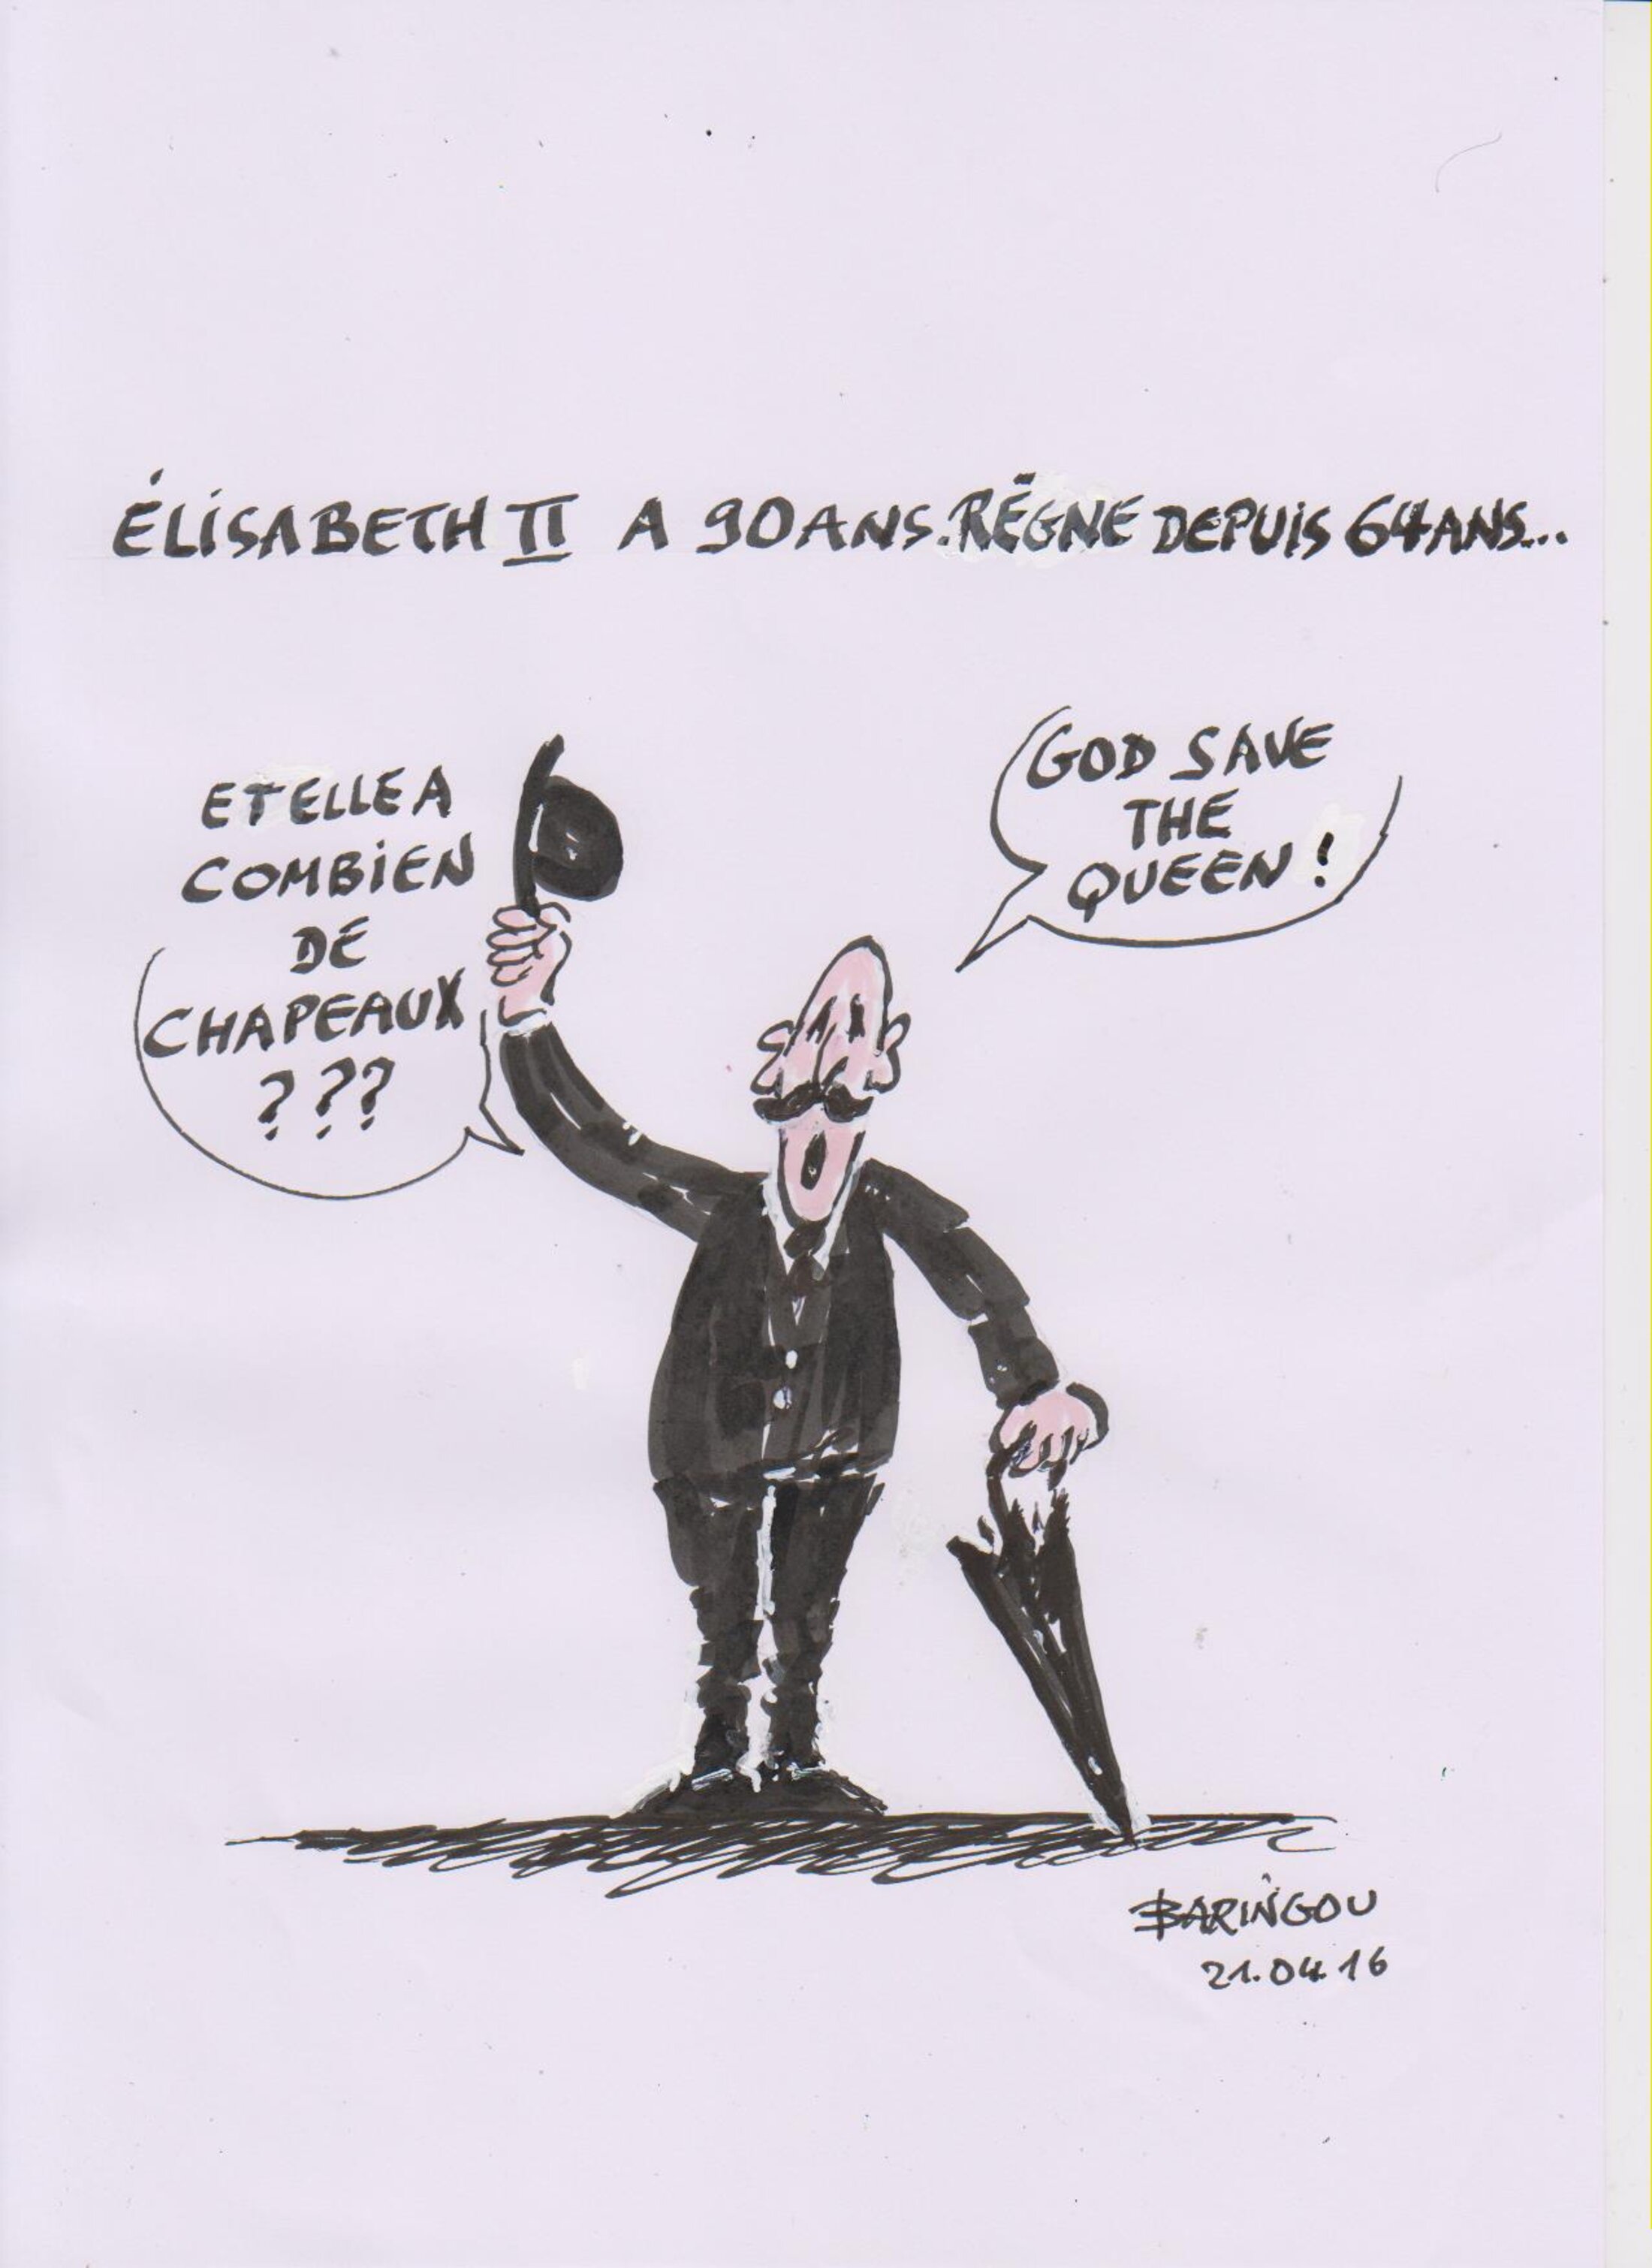 ÉLISABETH II A 90 ANS. RÈGNE DEPUIS 64 ANS...
ET ELLE A
COMBIEN
DE
CHAPEAUX
???
GOD SAVE
THE
QUEEN !
BARINGOU
21.04.16